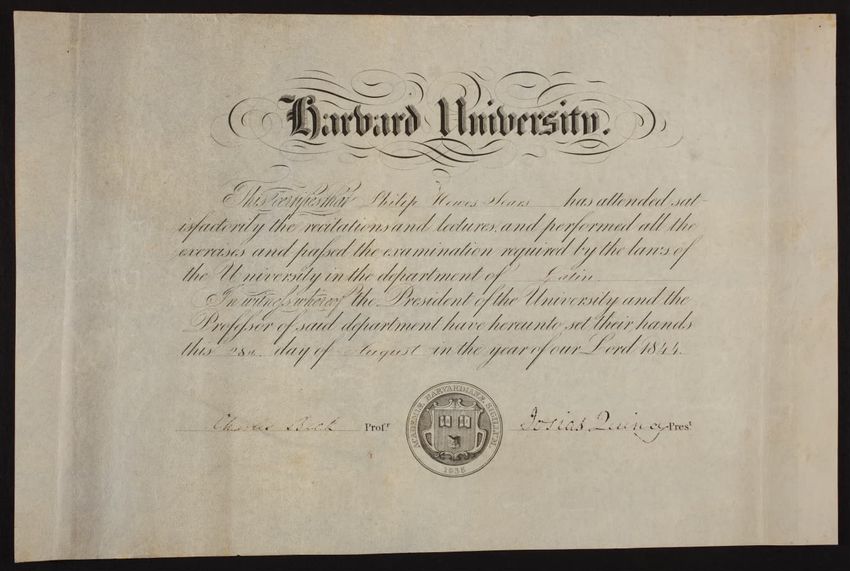 Harvard University.
This certifies that Philip Howes Sears has attended sat-
isfactorily the recitations and lectures, and performed all the
exercises and passed the examination required by the laws of
the University in the department of Latin
In witness whereof the President of the University and the
Professor of said department have hereunto set their hands
this 28th day of August in the year of our Lord 1844.
Charles Beck Profr
ACADEMIÆ HARVARDIANÆ SIGILLUM
1636
Josiah Quincy Prest